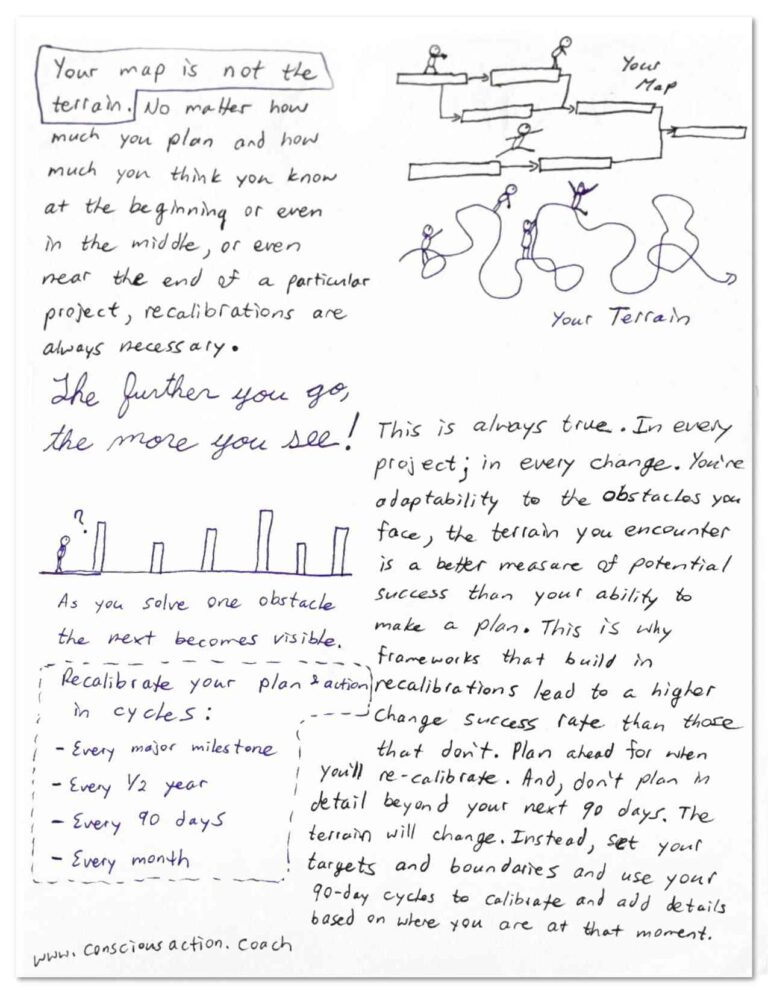 Your map is not the
terrain. No matter how
much you plan and how
much you think you know
at the beginning or even
in the middle, or even
near the end of a particular
project, recalibrations are
always necessary.
Your
Map
Your Terrain
The further you go,
the more you see!
?
As you solve one obstacle
the next becomes visible.
Recalibrate your plan & action
in cycles:
- Every major milestone
- Every 1/2 year
- Every 90 days
- Every month
This is always true. In every
project; in every change. You're
adaptability to the obstacles you
face, the terrain you encounter
is a better measure of potential
success than your ability to
make a plan. This is why
frameworks that build in
recalibrations lead to a higher
change success rate than those
that don't. Plan ahead for when
you'll re-calibrate. And, don't plan in
detail beyond your next 90 days. The
terrain will change. Instead, set your
targets and boundaries and use your
90-day cycles to calibrate and add details
based on where you are at that moment.
www.consciousaction.coach